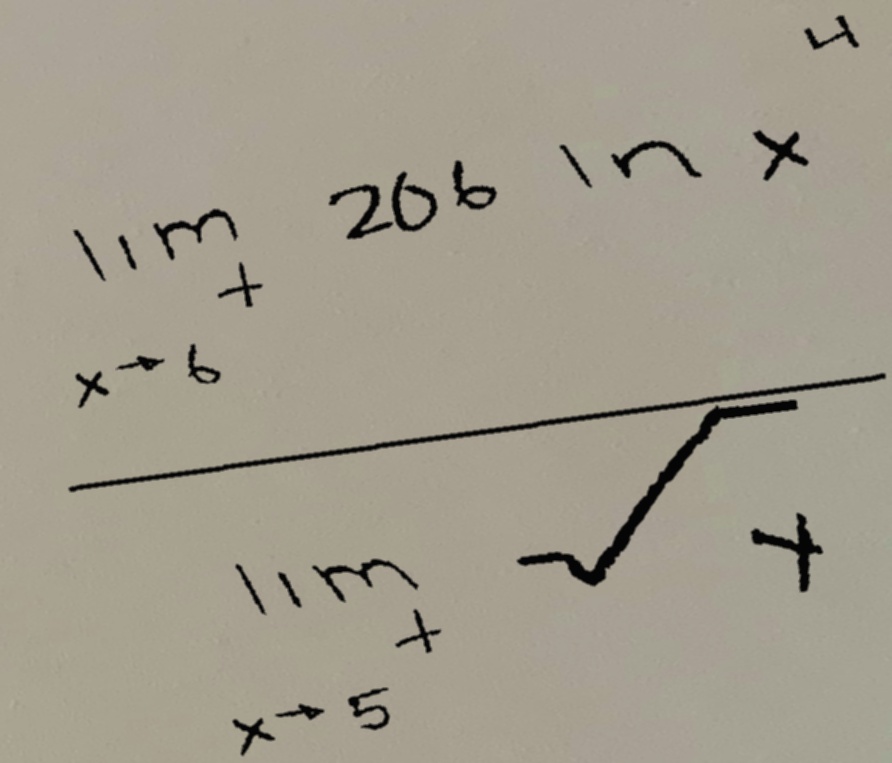 lim_{x→6^+} 206 ln x^4
lim_{x→5^+} √4